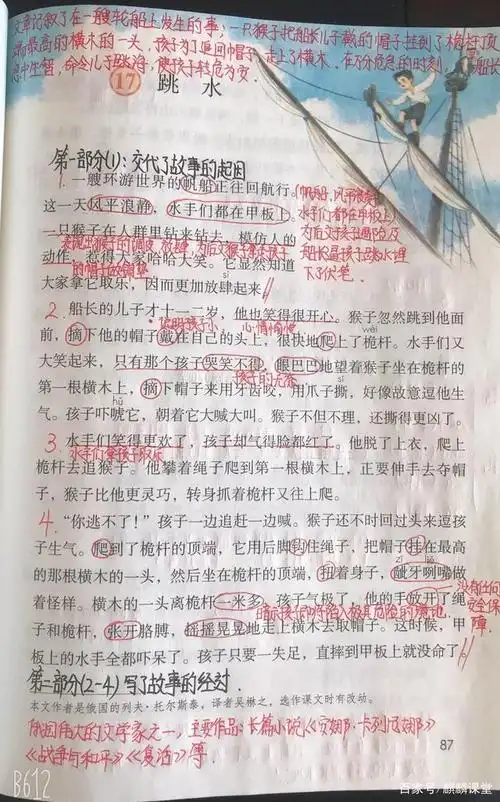 文章记叙了在一艘轮船上发生的事,一只猴子把船长儿子戴的帽子挂到了桅杆顶
端最高的横木的一头,孩子为了追回帽子,走上了横木。在十分危急的时刻,船长
急中生智,命令儿子跳海,使孩子转危为安
17 跳水
第一部分(1):交代了故事的起因
1.一艘环游世界的帆船正往回航行。
这一天风平浪静,水手们都在甲板上。
一只猴子在人群里钻来钻去,模仿人的
动作,惹得大家哈哈大笑。它显然知道
大家拿它取乐,因而更加放肆起来
水手们都在甲板上
为后文
下了伏笔。
sì
2.船长的儿子才十一二岁,他也笑得很开心。猴子忽然跳到他面
说明孩子小
心情愉悦
wéi
前,摘下他的帽子戴在自己的头上,很快地爬上了桅杆。水手们又
大笑起来,只有那个孩子哭笑不得,眼巴巴地望着猴子坐在桅杆的
孩子的无奈
sī
第一根横木上,摘下帽子来用牙齿咬,用爪子撕,好像故意逗他生
hǔ
气。孩子吓唬它,朝着它大喊大叫。猴子不但不理,还撕得更凶了。
3.水手们笑得更欢了,孩子却气得脸都红了。他脱了上衣,爬上
水手们拿孩子取乐
桅杆去追猴子。他攀着绳子爬到第一根横木上,正要伸手去夺帽
子,猴子比他更灵巧,转身抓着桅杆又往上爬。
4.“你逃不了!”孩子一边追赶一边喊。猴子还不时回过头来逗孩
子生气。爬到了桅杆的顶端,它用后脚钩住绳子,把帽子挂在最高
的那根横木的一头,然后坐在桅杆的顶端,扭着身子,龇牙咧嘴做
没有任何
安全保
障
着怪样。横木的一头离桅杆一米多。孩子气极了,他的手放开了绳
暗示孩子即将陷入极其危险的境地
子和桅杆,张开胳膊,摇摇晃晃地走上横木去取帽子。这时候,甲
板上的水手全都吓呆了。孩子只要一失足,直摔到甲板上就没命了
第二部分(2-4)写了故事的经过
本文作者是俄国的列夫·托尔斯泰,译者吴琳之,选作课文时有改动。
俄国伟大的文学家之一,主要作品:长篇小说《安娜·卡列尼娜》
《战争与和平》《复活》等.
87
B612
百家号/麒麟课堂